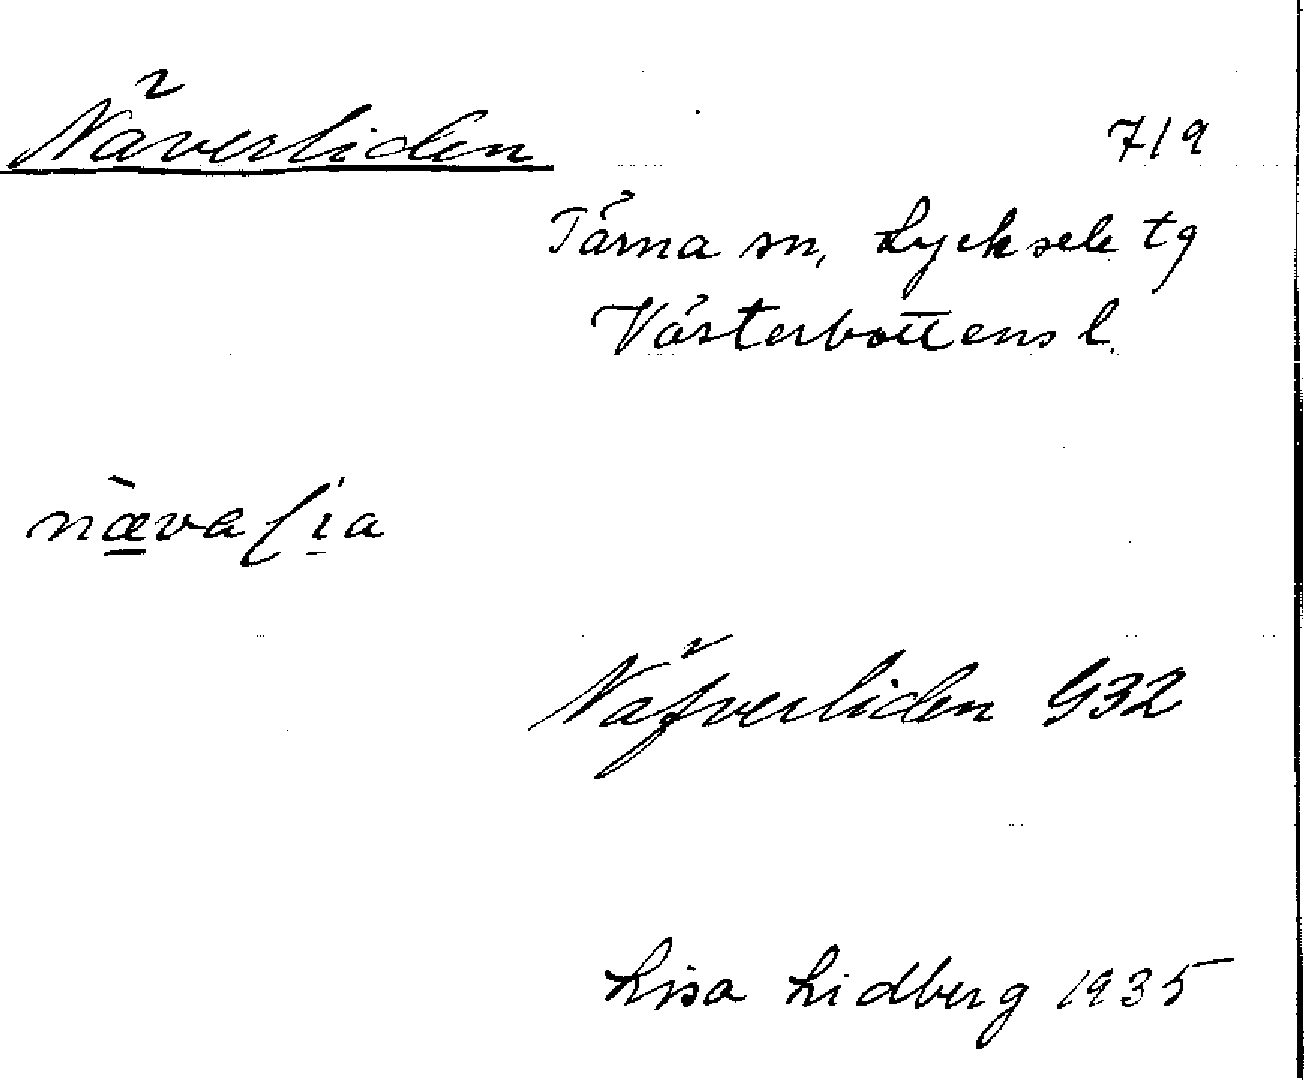 Näverliden
719
Tärna sn, Lycksele tg
Västerbottens l.
nævaLia
Näfverliden G32
Lisa Lidberg 1935